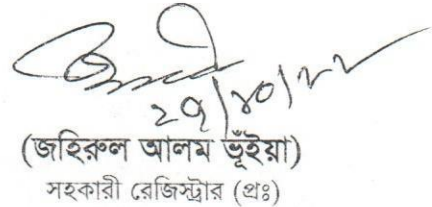 ২৭/১০/২২
(জহিরুল আলম ভূঁইয়া)
সহকারী রেজিস্ট্রার (প্রঃ)